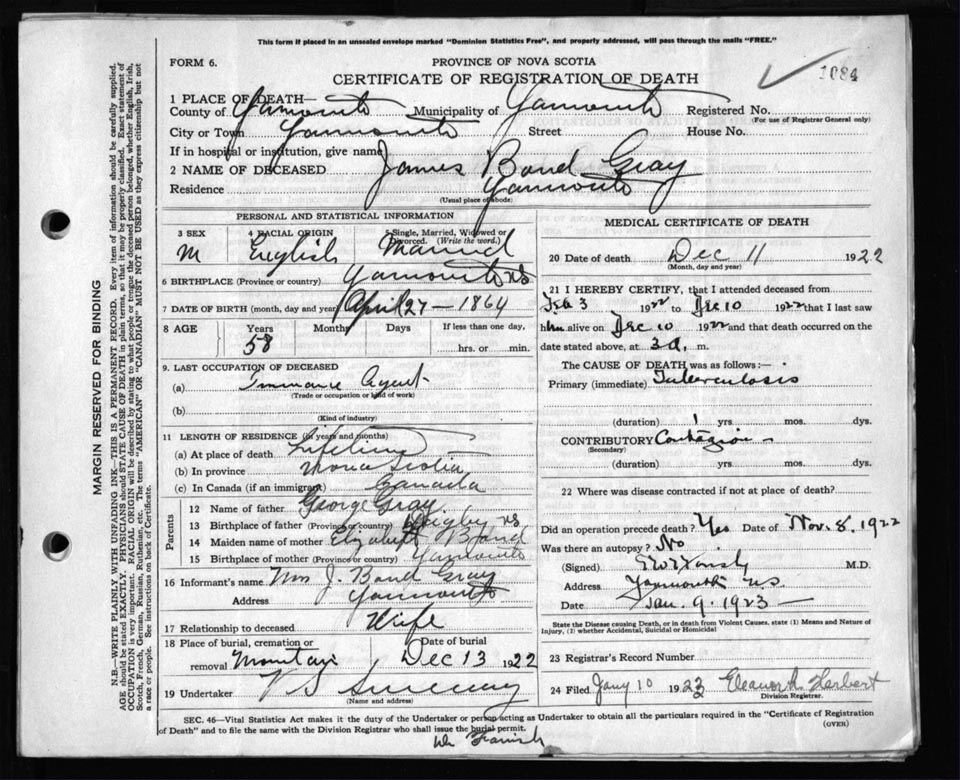 This form if placed in an unsealed envelope marked "Dominion Statistics Free", and properly addressed, will pass through the mails "FREE."
FORM 6.
PROVINCE OF NOVA SCOTIA
CERTIFICATE OF REGISTRATION OF DEATH
1084
1 PLACE OF DEATH—
County of Yarmouth Municipality of Yarmouth Registered No.
(For use of Registrar General only)
City or Town Yarmouth Street House No.
If in hospital or institution, give name
2 NAME OF DECEASED James Bond Gray
Residence Yarmouth
(Usual place of abode)
PERSONAL AND STATISTICAL INFORMATION
3 SEX 4 RACIAL ORIGIN 5 Single, Married, Widowed or Divorced. (Write the word.)
M English Married
6 BIRTHPLACE (Province or country) Yarmouth NS
7 DATE OF BIRTH (month, day and year) April 27 — 1864
8 AGE Years Months Days If less than one day,
58 hrs. or min.
9. LAST OCCUPATION OF DECEASED
(a) Agent
(Trade or occupation or kind of work)
(b)
(Kind of industry)
11 LENGTH OF RESIDENCE (in years and months)
(a) At place of death Lifetime
(b) In province Nova Scotia
(c) In Canada (if an immigrant) Canada
Parents
12 Name of father George Gray
13 Birthplace of father (Province or country) Digby NS
14 Maiden name of mother Elizabeth Bond
15 Birthplace of mother (Province or country) Yarmouth
16 Informant's name Mrs J. Bond Gray
Address Yarmouth
17 Relationship to deceased Wife
18 Place of burial, cremation or removal Date of burial
Mountain Dec 13 1922
19 Undertaker V S Sweeney
(Name and address)
MEDICAL CERTIFICATE OF DEATH
20 Date of death Dec 11 1922
(Month, day and year)
21 I HEREBY CERTIFY, that I attended deceased from
Feb 3 1922 to Dec 10 1922 that I last saw
him alive on Dec 10 1922 and that death occurred on
date stated above, at 3 a. m.
The CAUSE OF DEATH was as follows:—
Primary (immediate) Tuberculosis
(duration) 1 yrs mos. dys.
CONTRIBUTORY Contagion
(Secondary)
(duration) yrs mos. dys.
22 Where was disease contracted if not at place of death?
Did an operation precede death? Yes Date of Nov. 8. 1922
Was there an autopsy? No
(Signed) M.D.
Address Yarmouth N.S.
Date Jan. 9. 1923
State the Disease causing Death, or in death from Violent Causes, state (1) Means and Nature of Injury, (2) whether Accidental, Suicidal or Homicidal
23 Registrar's Record Number
24 Filed Jany 10 1923 Eleanor A. Herbert
Division Registrar.
SEC. 46—Vital Statistics Act makes it the duty of the Undertaker or person acting as Undertaker to obtain all the particulars required in the "Certificate of Registration
of Death" and to file the same with the Division Registrar who shall issue the burial permit. (OVER)
MARGIN RESERVED FOR BINDING
N.B.—WRITE PLAINLY WITH UNFADING INK—THIS IS A PERMANENT RECORD. Every item of information should be carefully supplied.
AGE should be stated EXACTLY. PHYSICIANS should STATE CAUSE OF DEATH in plain terms, so that it may be properly classified. Exact statement of
OCCUPATION is very important. RACIAL ORIGIN will be described by stating to what people or tongue the deceased person belonged, whether English, Irish,
Scotch, French, German, Russian, Ruthenian, etc. The terms "AMERICAN" or "CANADIAN" MUST NOT BE USED as they express citizenship but not
a race or people. See instructions on back of Certificate.